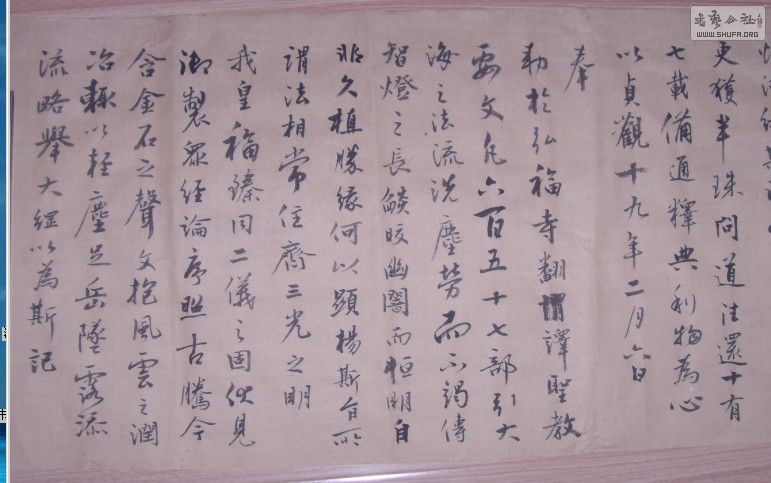 更獲半珠問道往還十有
七載備通釋典利物為心
以貞觀十九年二月六日
奉
勅於弘福寺翻譯聖教
要文凡六百五十七部引大
海之法流洗塵勞而不竭傳
智燈之長燄皎幽闇而恒明自
非久植勝緣何以顯楊斯旨所
謂法相常住齊三光之明
我皇福臻同二儀之固伏見
御製眾經論序照古騰今
含金石之聲文抱風雲之潤
冶輒以輕塵足岳墜露添
流略舉大綱以為斯記
書藝公社
WWW.SHUFA.ORG